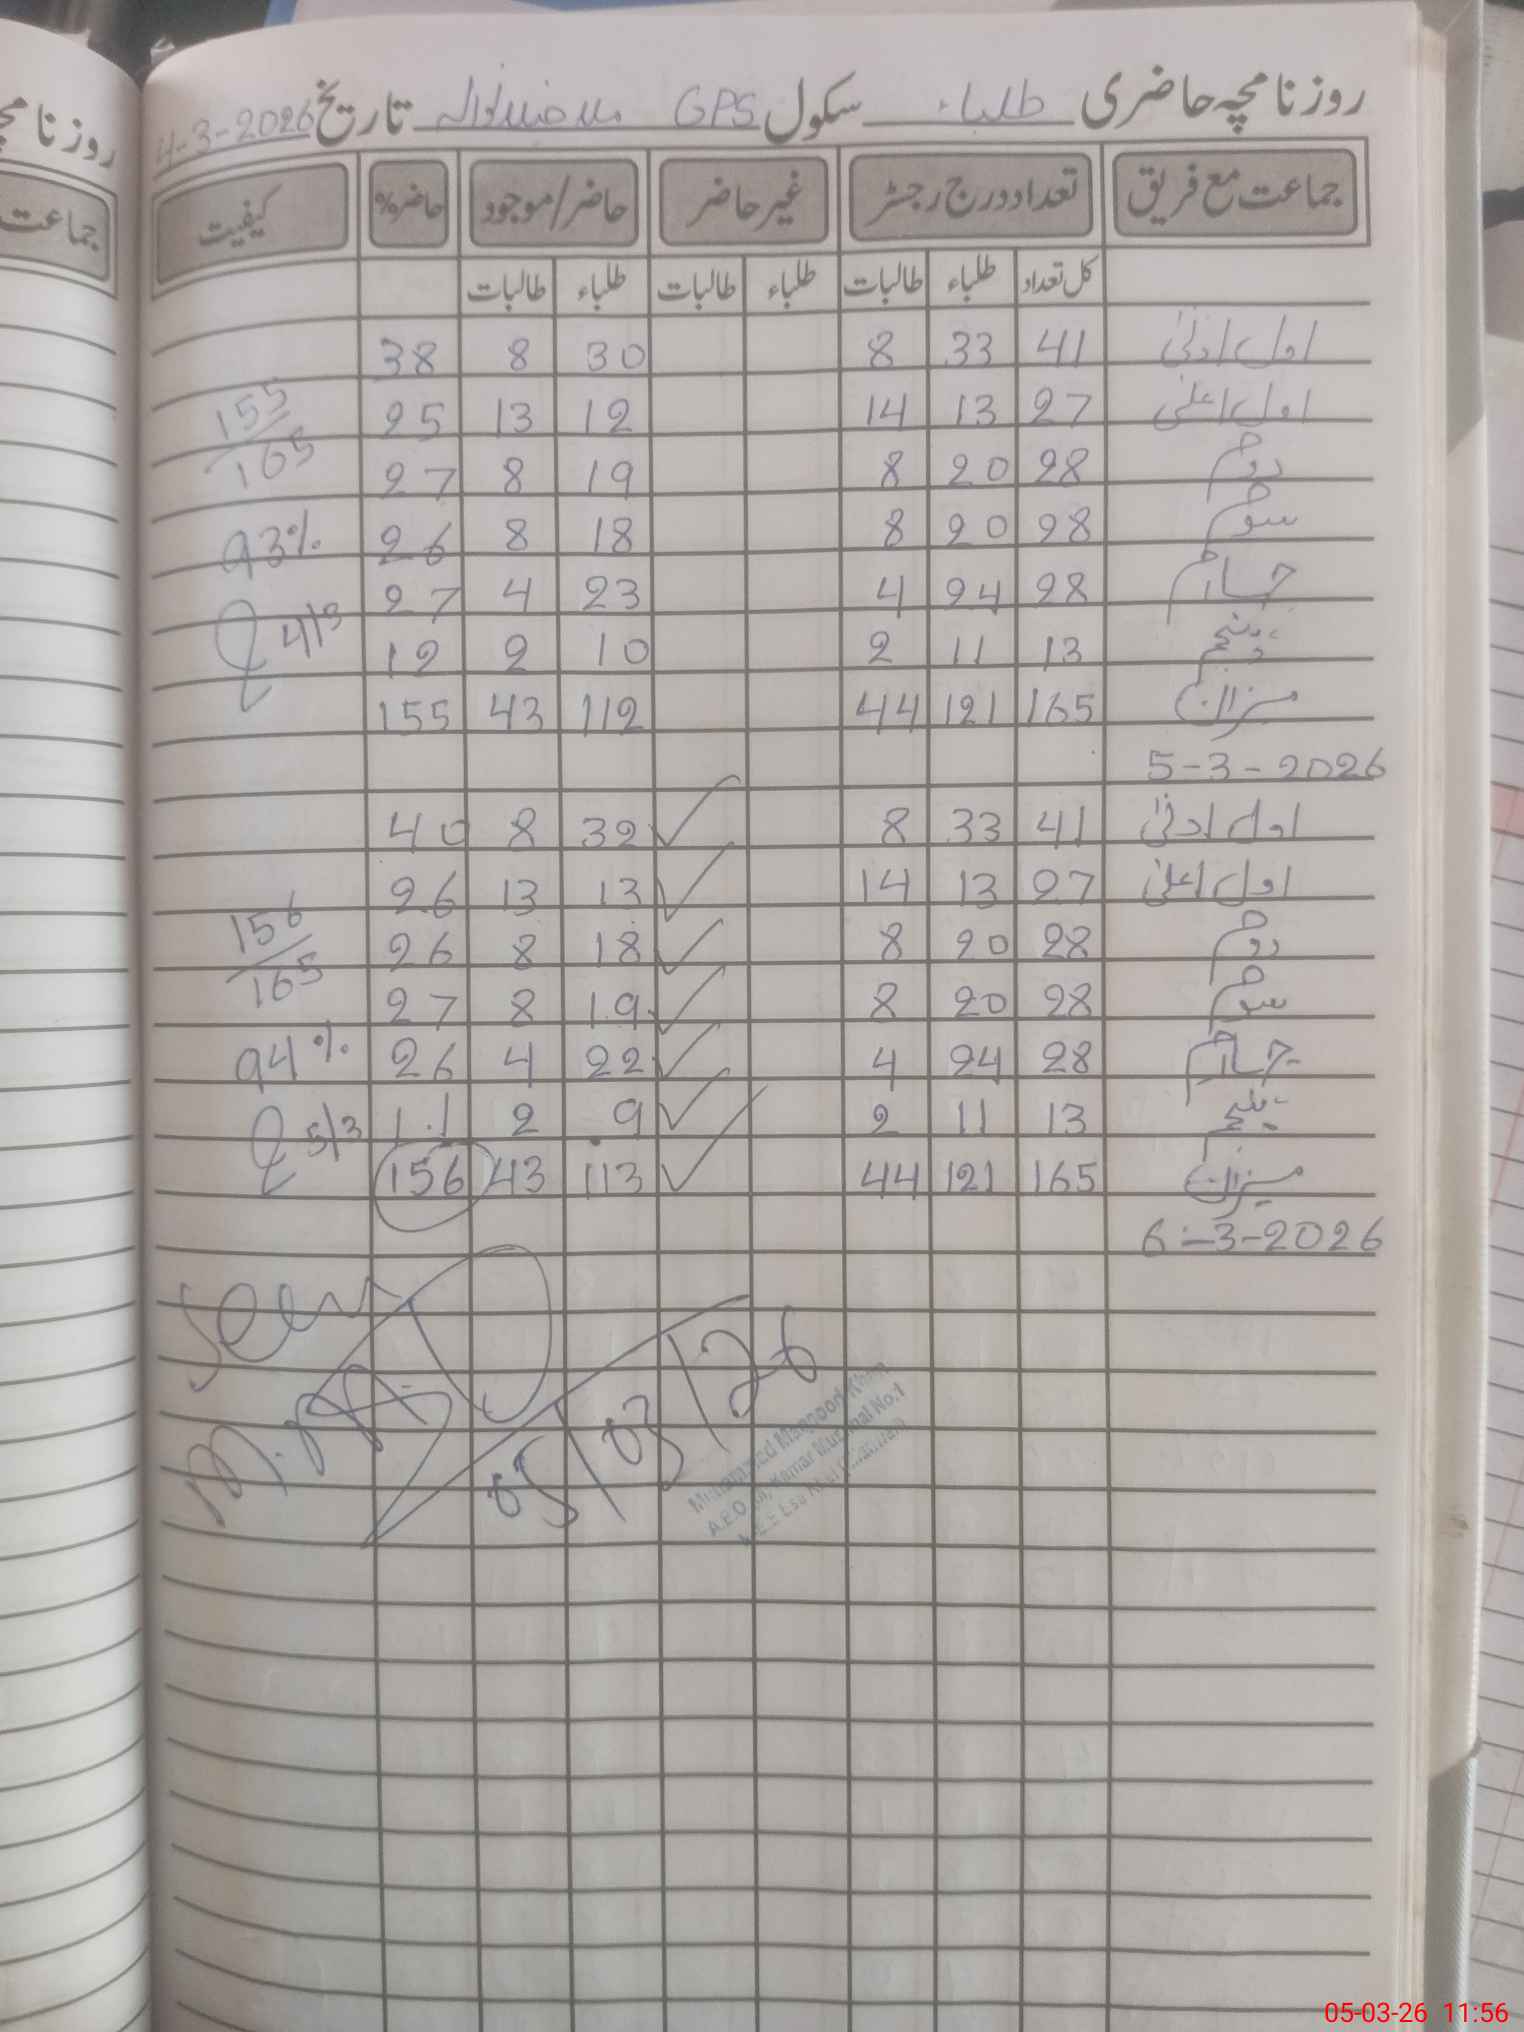 روزنامچہ حاضری طلباء سکول GPS تاریخ 4-3-2026
جماعت مع فریق تعداد درج رجسٹر غیر حاضر حاضر/موجود حاضر% کیفیت
کل تعداد طلباء طالبات طلباء طالبات طلباء طالبات
اول ادنیٰ 41 33 8 30 8 38
اول اعلیٰ 27 13 14 12 13 25 155/165
دوم 28 20 8 19 8 27
سوم 28 20 8 18 8 26 93%
چہارم 28 24 4 23 4 27 4/3
پنجم 13 11 2 10 2 12
میزان 165 121 44 112 43 155
5-3-2026
اول ادنیٰ 41 33 8 ✓ 32 8 40
اول اعلیٰ 27 13 14 ✓ 13 13 26
دوم 28 20 8 ✓ 18 8 26 156/165
سوم 28 20 8 ✓ 19 8 27
چہارم 28 24 4 ✓ 22 4 26 94%
پنجم 13 11 2 ✓ 9 2 11 5/3
میزان 165 121 44 ✓ 113 43 156
6-3-2026
Seen
05/03/26
A.E.O Kamar Mushal No.1
روزنامچہ
جماعت
05-03-26 11:56